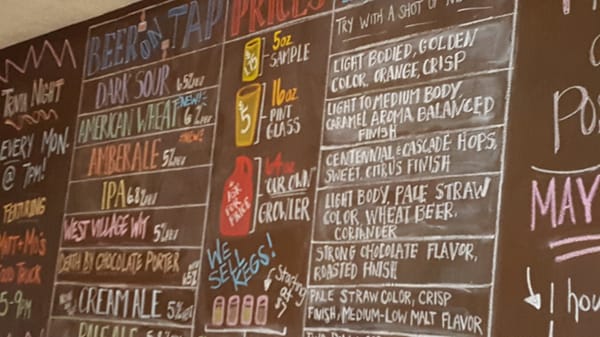 Trivia Night
EVERY MON.
@ 7PM!
FEATURING
Matt + Mo's
Food Truck
5-9PM
BEER ON TAP
DARK SOUR 6.5% ABV
NEW!
AMERICAN WHEAT
NEW!
AMBER ALE 5% ABV
IPA 6.8% ABV
WEST VILLAGE WIT 5% ABV
DEATH BY CHOCOLATE PORTER
CREAM ALE 5% ABV
PALE ALE
PRICES
5oz
SAMPLE
16oz
$5
PINT
GLASS
ASK
FOR
PRICE
"OUR OWN"
GROWLER
WE
SELL
KEGS!
Starting
at
TRY WITH A SHOT OF
LIGHT BODIED, GOLDEN
COLOR, ORANGE, CRISP
LIGHT TO MEDIUM BODY,
CARAMEL AROMA, BALANCED
FINISH
CENTENNIAL & CASCADE HOPS,
SWEET, CITRUS FINISH
LIGHT BODY, PALE STRAW
COLOR, WHEAT BEER,
CORIANDER
STRONG CHOCOLATE FLAVOR,
ROASTED FINISH
PALE STRAW COLOR, CRISP
FINISH, MEDIUM-LOW MALT FLAVOR
MAY
1 hou